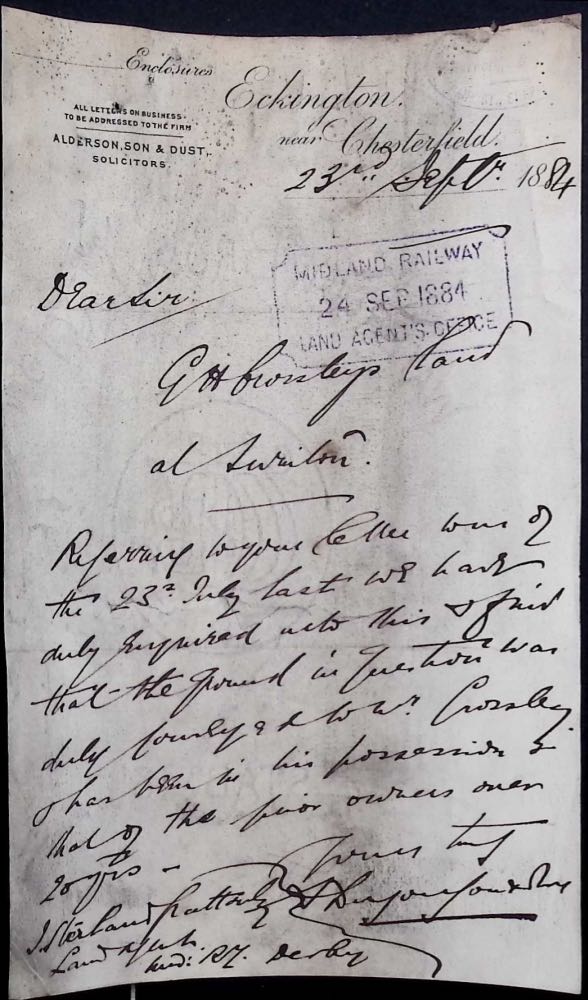 Enclosures
ALL LETTERS ON BUSINESS
TO BE ADDRESSED TO THE FIRM
ALDERSON, SON & DUST,
SOLICITORS.
Eckington.
near Chesterfield.
23rd Septr 1884
MIDLAND RAILWAY
24 SEP 1884
LAND AGENT'S OFFICE
Dear Sir
G H Crossleys land
at Swinton.
Referring to your letter to us of
the 23d July last we have
duly enquired into this & find
that the ground in question was
duly conveyed to Mr. Crossley
& has been in his possession &
that of the prior owners over
20 yrs -
Yours truly
Land Agent
Mid: Ry. Derby